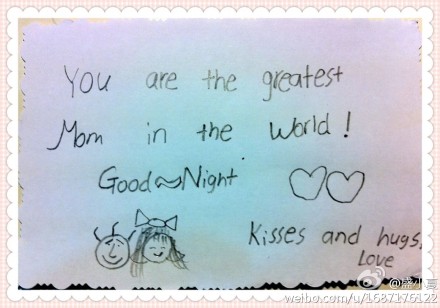 You are the greatest
Mom in the World!
Good~Night
Kisses and hugs,
Love
weibo.com/u/1687175122